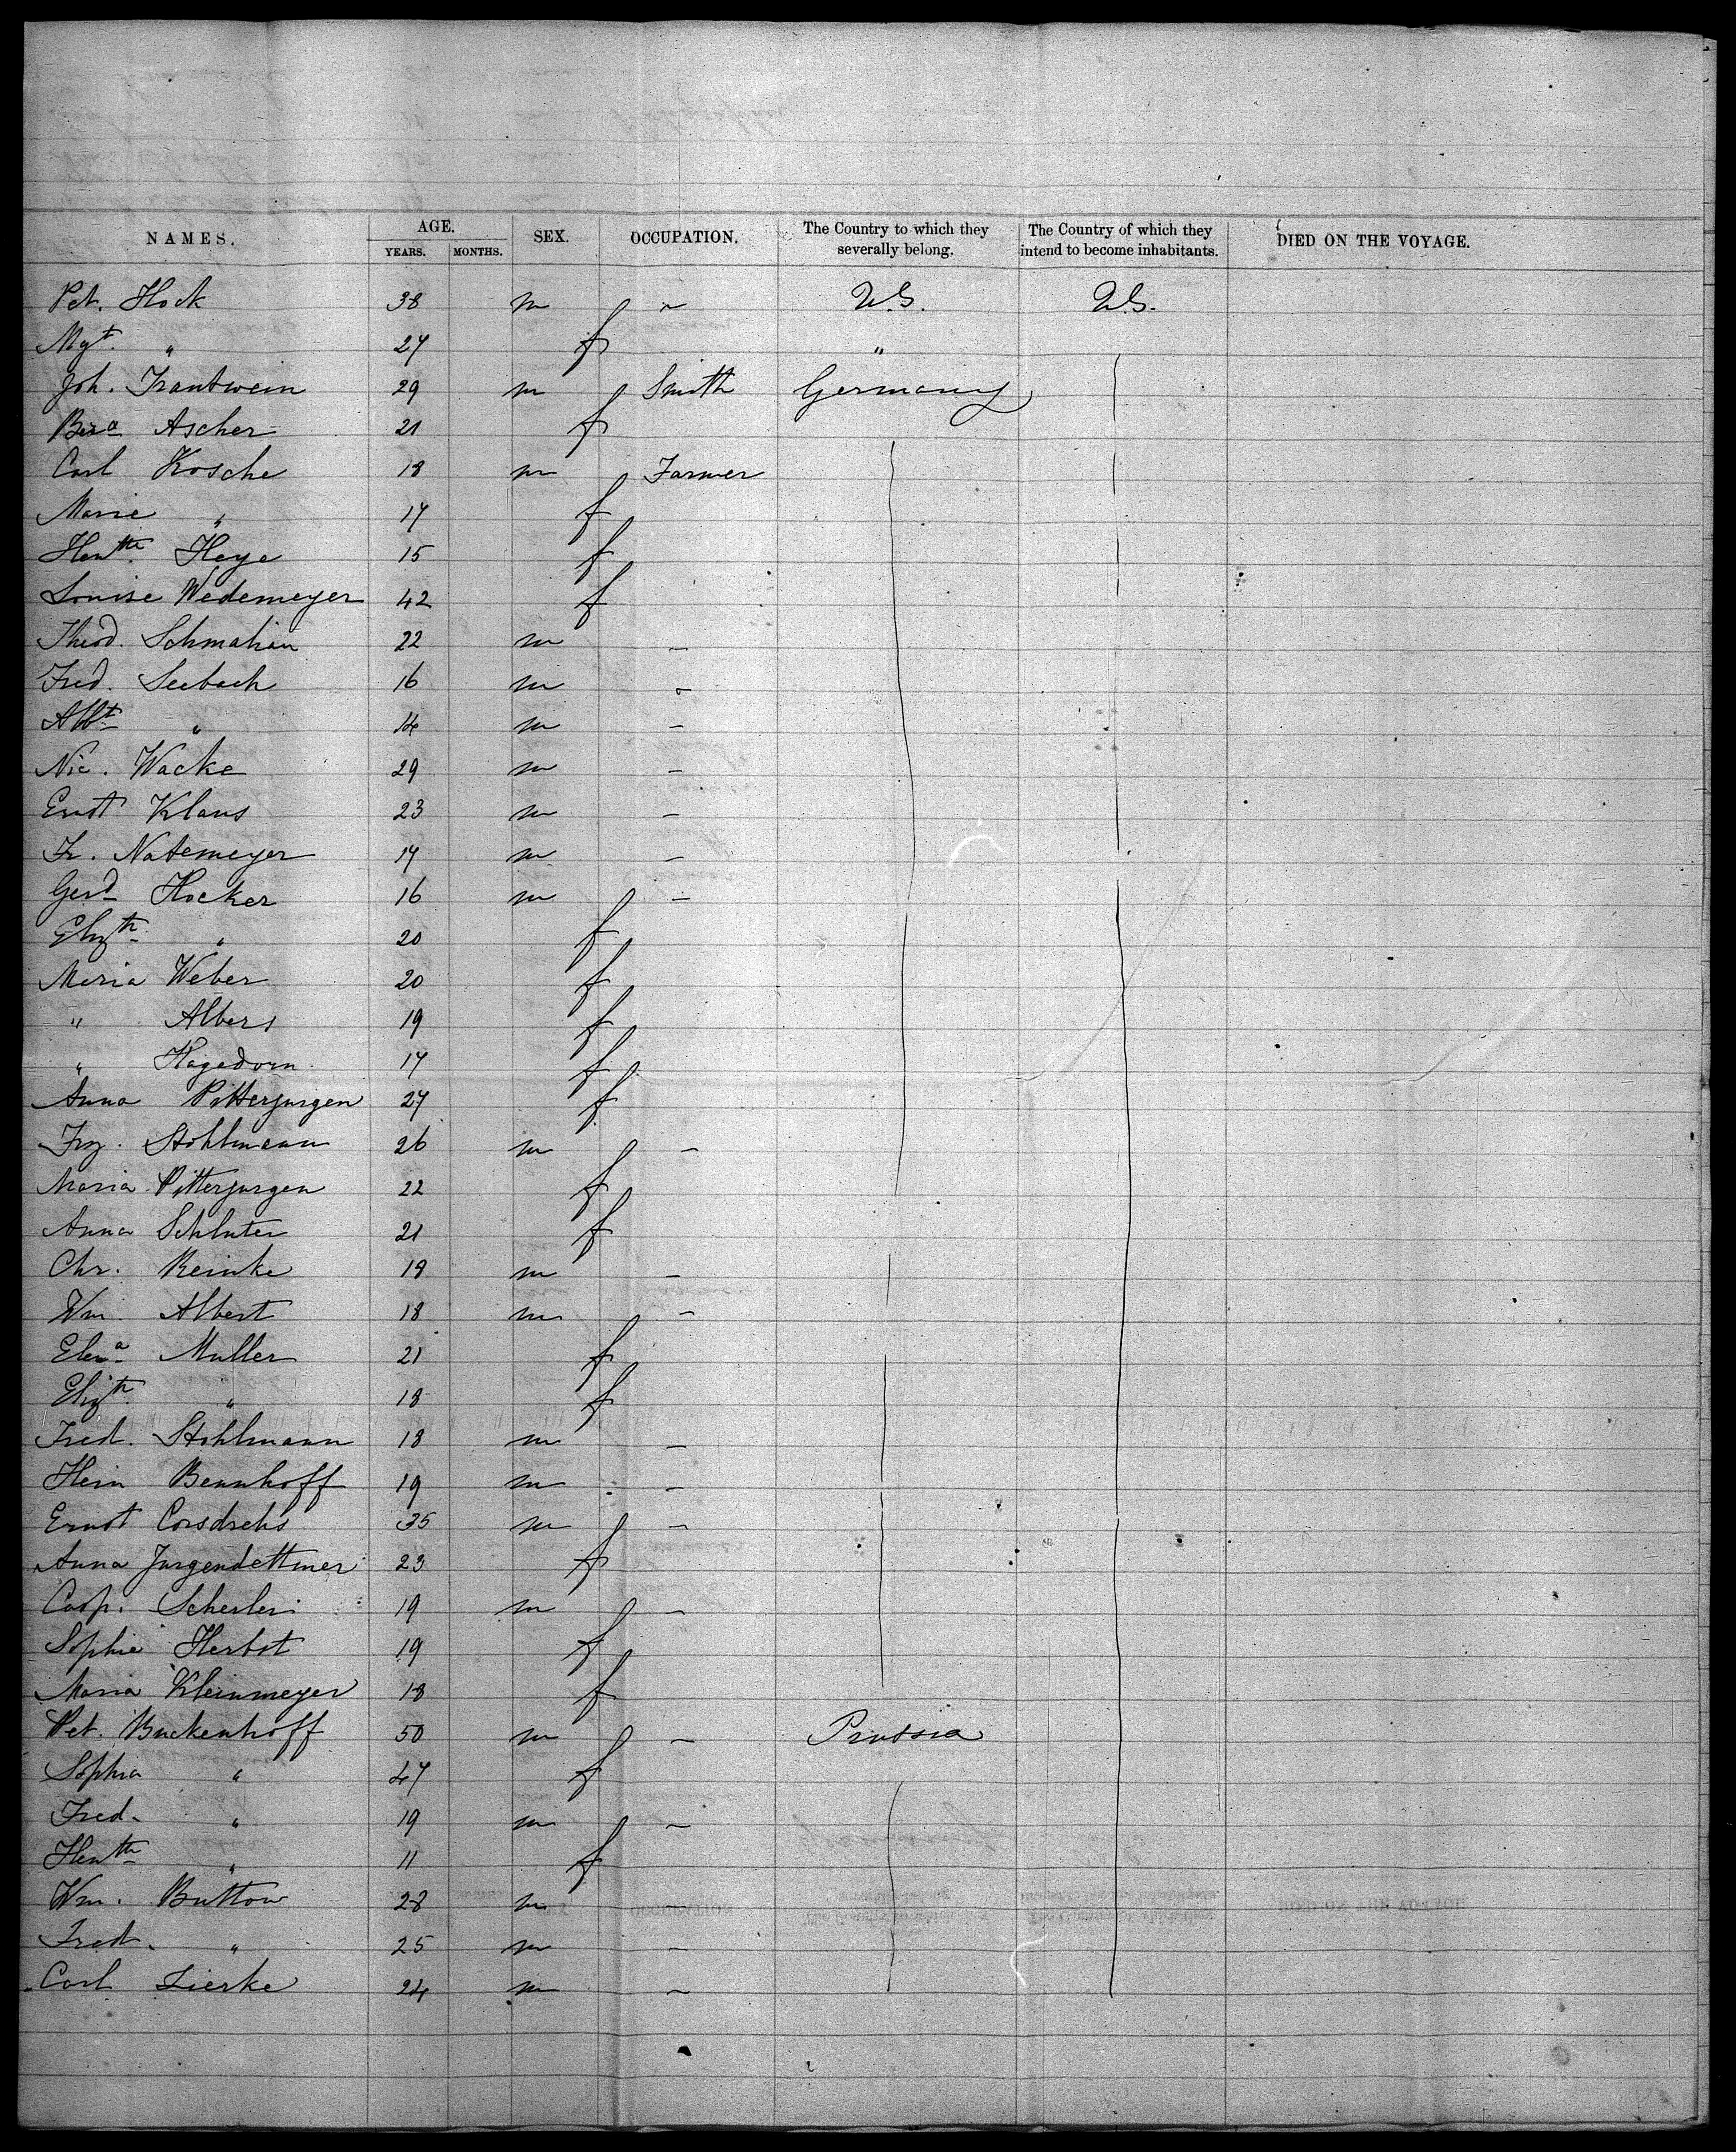 NAMES. AGE. YEARS. MONTHS. SEX. OCCUPATION. The Country to which they severally belong. The Country of which they intend to become inhabitants. DIED ON THE VOYAGE.
Pet. Hock 38 m ~ U.S. U.S.
Mgt. " 27 f "
Joh. Trantwein 29 m Smith Germany
Ascher 21 f
Carl Kosche 18 m Farmer
Marie " 17 f
Hentte Heye 15 f
Louise Wedemeyer 42 f
Theod. Schmahan 22 m –
Fred. Seebach 16 m –
Albt " 14 m –
Nic. Wacke 29 m –
Ernst Klaus 23 m –
Fr. Natemeyer 17 m –
Gerd Hocker 16 m –
Elizth " 20 f
Maria Weber 20 f
" Albers 19 f
" Hagedorn 17 f
Anna Pitterjurgen 27 f
Frz. Stohlmann 26 m –
Maria Pitterjurgen 22 f
Anna Schluter 21 f
Chr. Reinke 18 m –
Wm. Albert 18 m –
Elena Muller 21 f
Elizth " 18 f
Fred. Stohlmann 18 m –
Hein Bennhoff 19 m –
Ernst Corsdrehs 35 m –
Anna Jurgendettmer 23 f
Casp. Scherler 19 m –
Sophie Herbst 19 f
Maria Kleinmeyer 18 f
Pet. Buckenhoff 50 m – Prussia
Sophia " 47 f
Fred. " 19 m ~
Hentte " 11 f
Wm. Buttow 28 m
Fred. " 25 m –
Carl Lierke 24 m ~